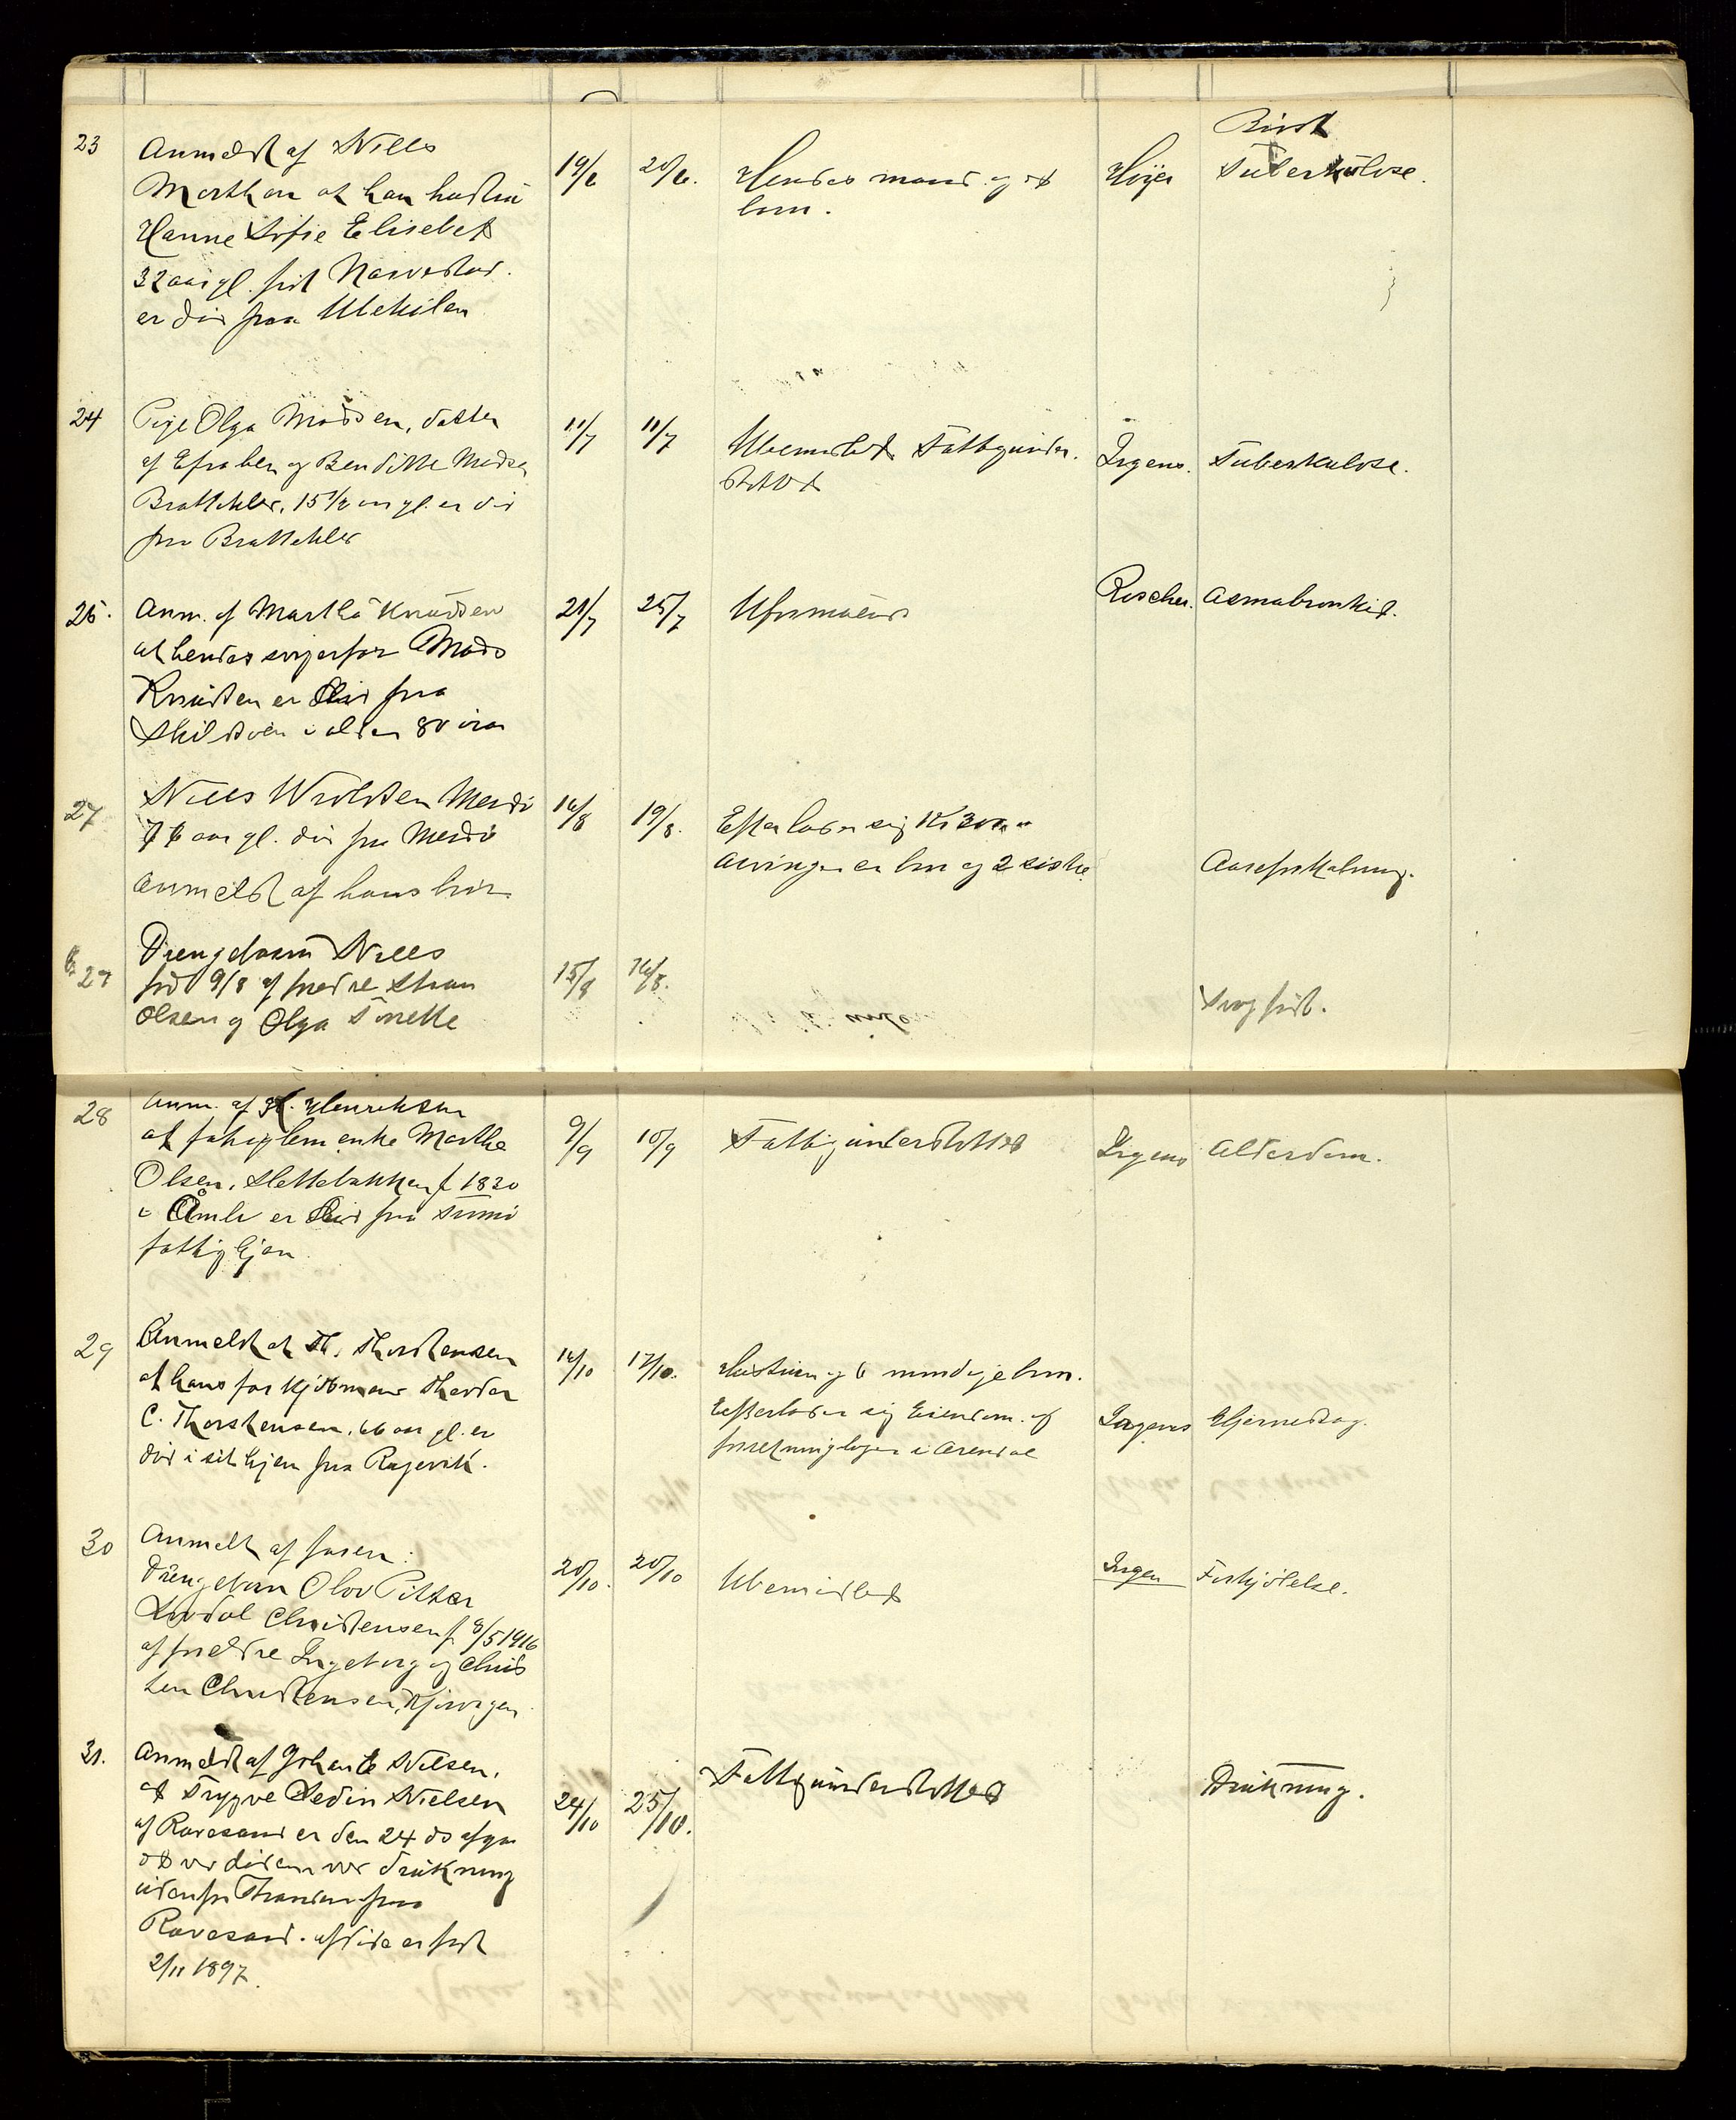 23
Anmeldt af Niels
Mortksen at han hustru
Hanne Sofie Elisebet
32 aar gl. født
er død fra Ulekilen
19/6
20/6.
Hendes mand og et
barn.
Höyer
Brist
Tuberkulose.
24
Pige Olga Madsen, datter
af Efraben og Benditte Madsen
Brattekler, 15 1/2 aar gl. er død
fra Brattekler
11/7
11/7
Ubemidlet Fattigunder-
støttet
Irgens.
Tuberkulose.
25.
Anm. af Martha Knudsen
at hendes svigerfar Mads
Knudsen er død fra
i alder 80 aar
21/7
25/7
Uformuende
Roscher.
Asmabronkit.
27
Niels Wroldsen Merdø
76 aar gl. død fra Merdø
Anmeldt af hans bror
16/8
19/8.
Efterlader sig Kr
arvinger er bror og 2 søstre
Aareforkalkning.
27
Drengebarn Niels
født 9/8 af foreldre
Olsen og Olga Tonette
15/8
16/8.
Svag født.
28
Anm. af H. Henriksen
at fattiglem enke Marthe
Olsen, Slettebakken f 1830
i Åmli er død fra Tromø
fattighjem
9/9
10/9
Fattigunderstøttet
Irgens
Alderdom.
29
Anmeldt at Th. Thorstensen
at hans far kjøbmand
C. Thorstensen, 66 aar gl. er
død i sit hjem fra Ragevik.
16/10
17/10.
Hustru og 6 mundige barn.
Efterlader sig Eiendom og
i Arendal
Irgens
Hjerneslag.
30
Anmeldt af faren:
Drengebarn Olav Pitter
Christensen f. 8/5 1916
af foreldre Ingeborg og Chris
ten Christensen,
20/10.
20/10
Ubemidlet
Irgen
Forkjølelse.
31.
Anmeldt af Johan E Nilsen,
at Trygve Nielsen
af Revesand er den 24 ds afgaa
et ved døden ved drukning
udenfor Tromøen fra
Revesand. afdøde er født
2/11 1897.
24/10
25/10.
Fattigunderstøttet
Drukning.